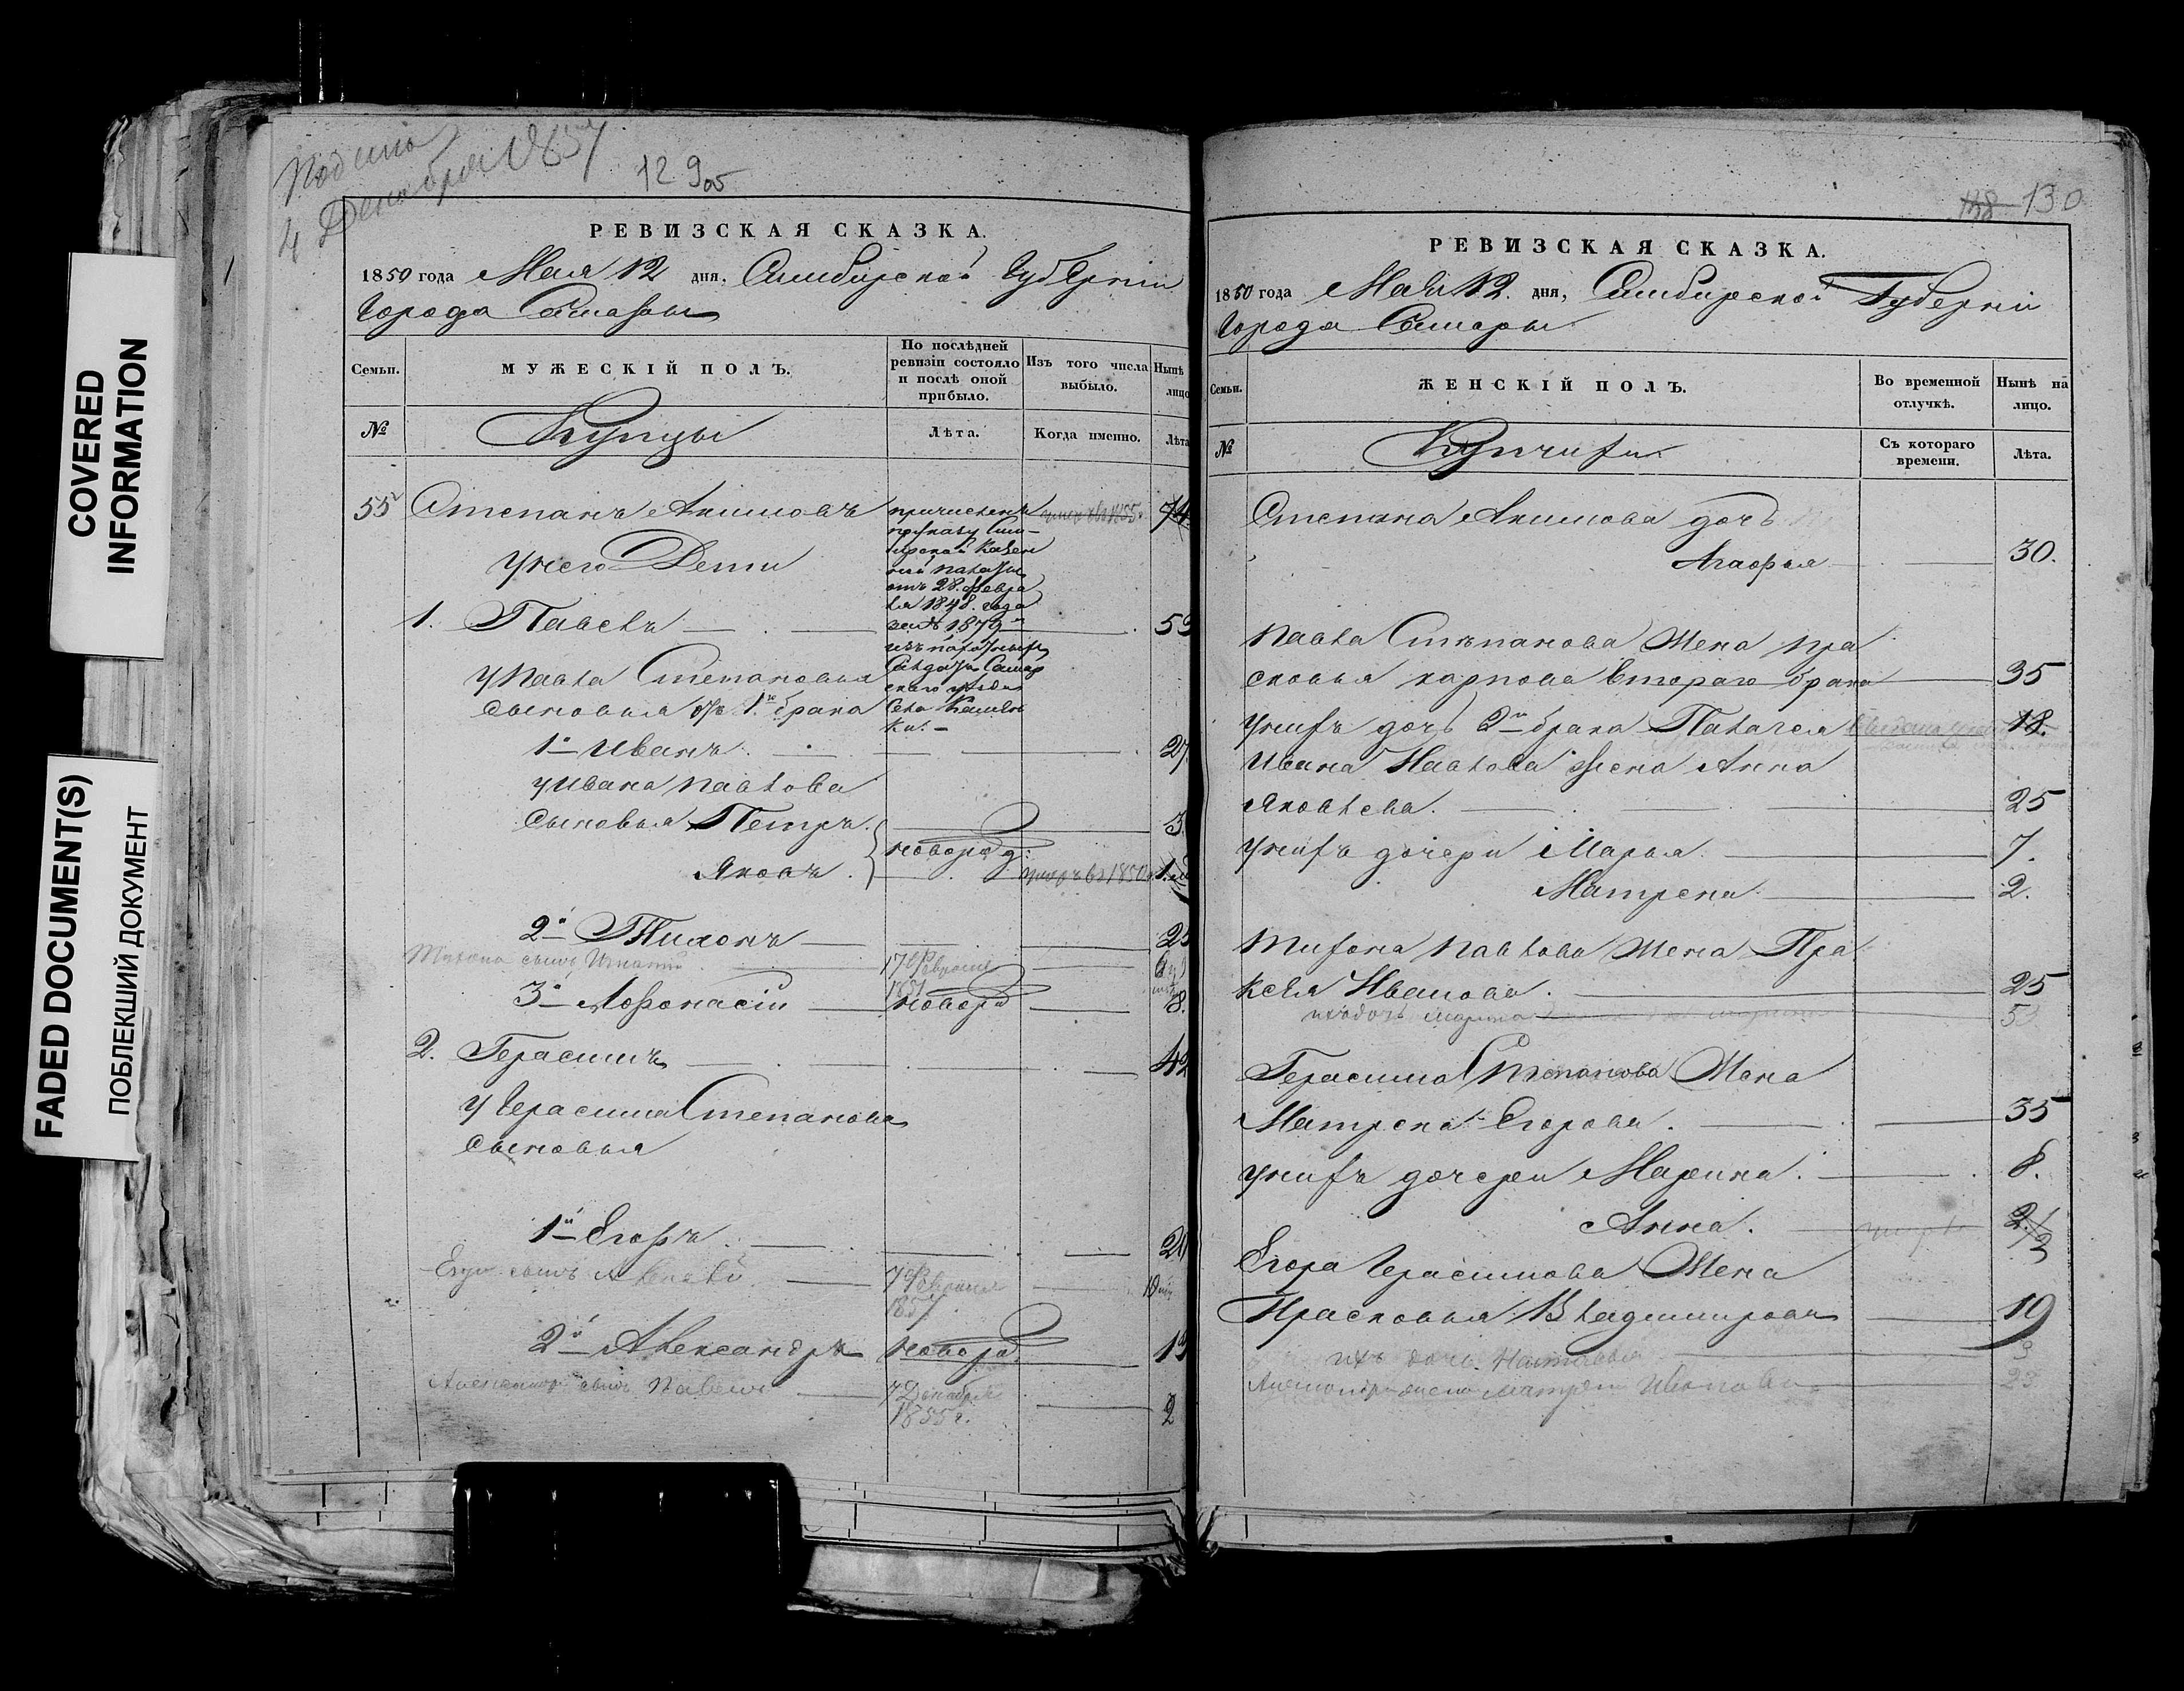 COVERED
INFORMATION
FADED DOCUMENT(S)
ПОБЛЕКШИЙ ДОКУМЕНТ
Подана
4 Декабря 1857
129 об
РЕВИЗСКАЯ СКАЗКА.
1850 года Мая 12 дня, Симбирской Губернiи
Города Самары
Семьи.
МУЖЕСКIЙ ПОЛЪ.
По послѣдней
ревизiи состояло
и послѣ оной
прибыло.
Изъ того числа
выбыло.
Нынѣ
лицо
№
Купцы
Лѣта.
Когда именно.
Лѣта
55 Степанъ Акимовъ причисленъ умеръ въ 1855 74
по указу Сим-
бирской Казен
ной Палаты
отъ 28. Февра
ля 1848. года
за № 1879
изъ
Самар
скаго уѣзда
Села Каменки. -
у него Дети
1. Павелъ
у Павла Степанова
сыновья отъ 1го брака
1й Иванъ 27
у Ивана Павлова
сыновья Петръ 3
новород:
Яковъ умеръ въ 1850
2й Тихонъ
Тихона сынъ Игнатiй 17 Февраля
1851
3й Афонасiй новорд 8.
2. Герасимъ
у Герасима Степанова
сыновья
1й Егоръ
Егора сынъ Алексѣй 7 Февраля
1857
2й Александръ новорд
Александра сынъ Павелъ 7 Декабря 2
1855 г.
138 130
РЕВИЗСКАЯ СКАЗКА.
1850 года Маiя 12. дня, Симбирской Губернiй
Города Самары
Семьи.
ЖЕНСКIЙ ПОЛЪ.
Во временной
отлучкѣ.
Нынѣ на
лицо.
№
Купчихи
Съ котораго
времени.
Лѣта.
Степана Акимова дочь
Агафья 30.
Павла Степанова Жена Пра
сковья Карпова втораго брака 35
у нихъ дочь 2го брака Палагея 18.
Ивана Павлова Жена Анна
Яковлева. 25
у нихъ дочери Марья. 7.
Матрена 2.
Тихона Павлова Жена Пра
ксвя Иванова. 25
ихъ дочь
Герасима Степанова Жена
Матрена Егорова. 35
у нихъ дочери Марина. 8.
Анна. умерла 2 1/2
Егора Герасимова Жена
Прасковья Владимирова 19
ихъ дочь Наталья 3
Александра жена Матрена Иванова 23